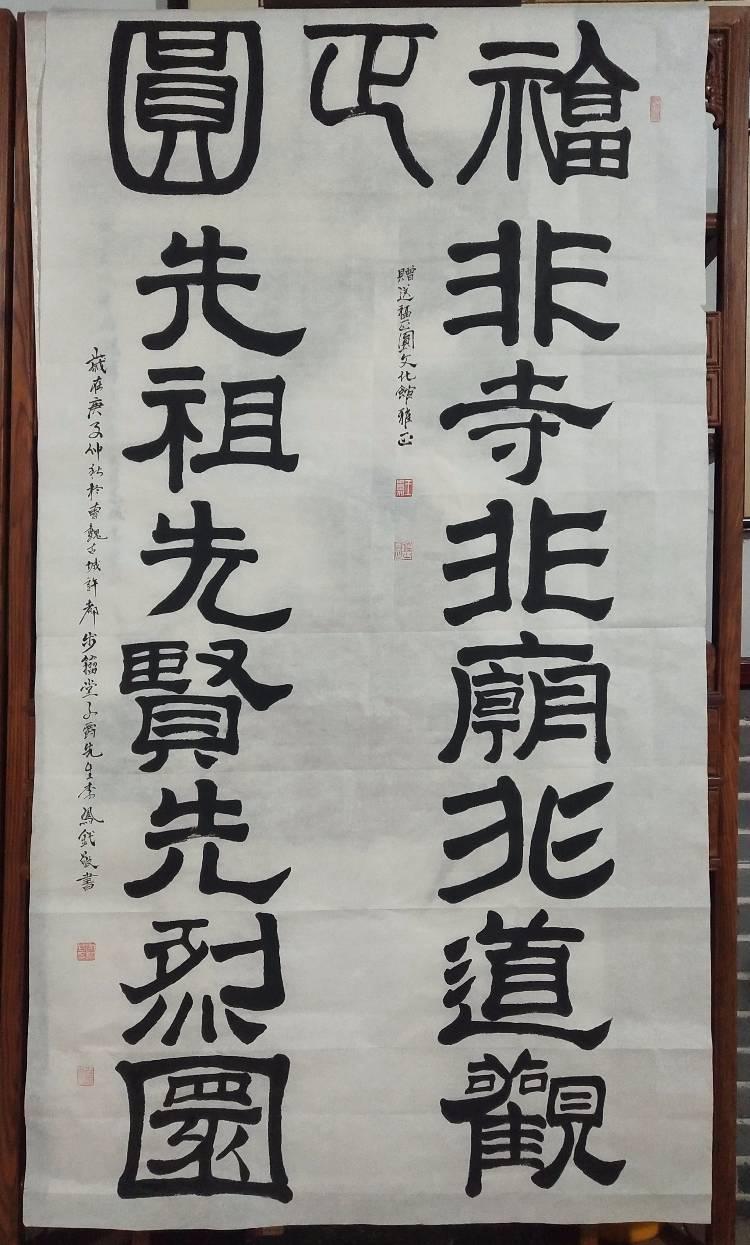 福正圓
非寺非廟非道觀
贈送福正圓文化館雅正
先祖先賢先烈圜
歲在庚子仲秋於曹魏古城許都步籀堂子爵先生李鳳敬書